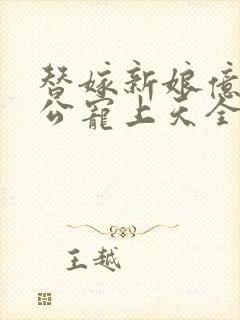 替嫁新娘億
公寵上天全
王越